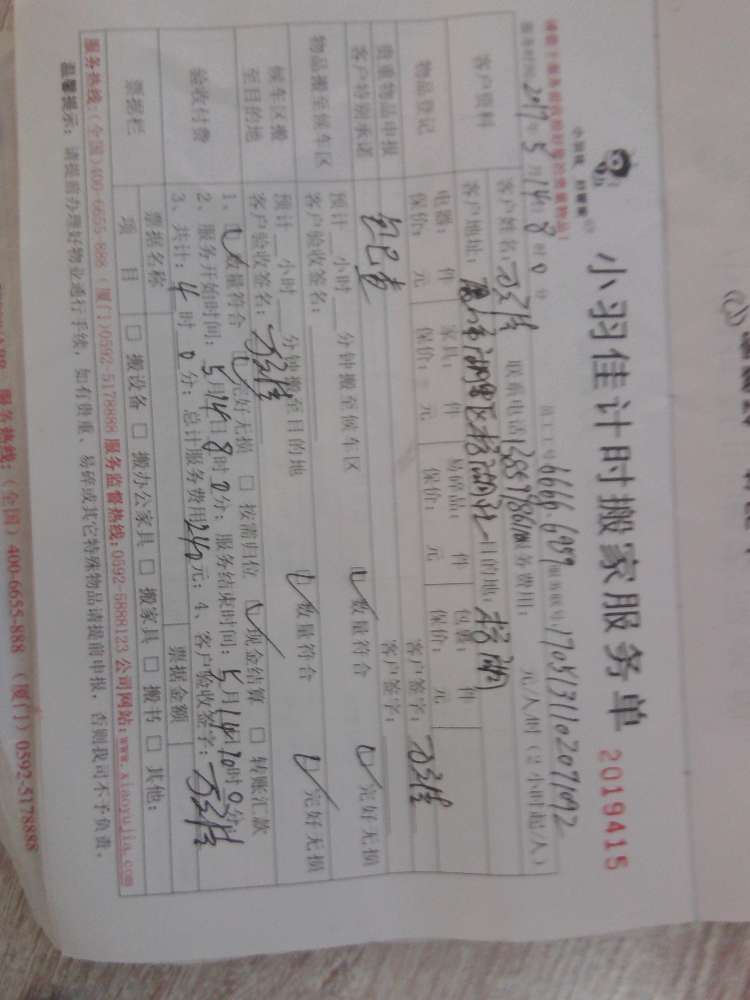 小羽佳计时搬家服务单 2019415
小羽佳，好管家
服务时间：2017年5月14日8时0分 员工工号：6666.6989 服务账号：170513110207092
客户资料
客户姓名： 联系电话： 服务费用： 元/人/时（2小时起/人）
客户地址： 目的地：杨湖
物品登记
电器： 件 家具： 件 易碎品： 件 包裹： 件
保价： 元 保价： 元 保价： 元 保价： 元
贵重物品申报
客户签字：
客户特别承诺
客户签字：
物品搬至候车区
预计 小时 分钟搬至候车区 数量符合 完好无损
客户验收签名：
候车区搬至目的地
预计 小时 分钟搬至目的地 数量符合 完好无损
客户验收签名：
验收付费
1、数量符合 完好无损 □ 按需归位 现金结算 □ 转账汇款
2、服务开始时间：5月14日8时0分；服务结束时间：5月14日 时0分
3、共计：4时0分；总计服务费用240元；4、客户验收签字：
票据栏
票据名称 票据金额
项目 □ 搬设备 □ 搬办公家具 □ 搬家具 □ 搬书 □ 其他：
服务热线：(全国)400-6655-888 (厦门)0592-5178888 服务监督热线：0592-5888123 公司网站：www.xiaoyujia.com
温馨提示：请提前办理好物业通行手续，如有贵重、易碎或其它特殊物品请提前申报，否则我司不予负责。
服务热线：(全国) 400-6655-888 (厦门) 0592-5178888